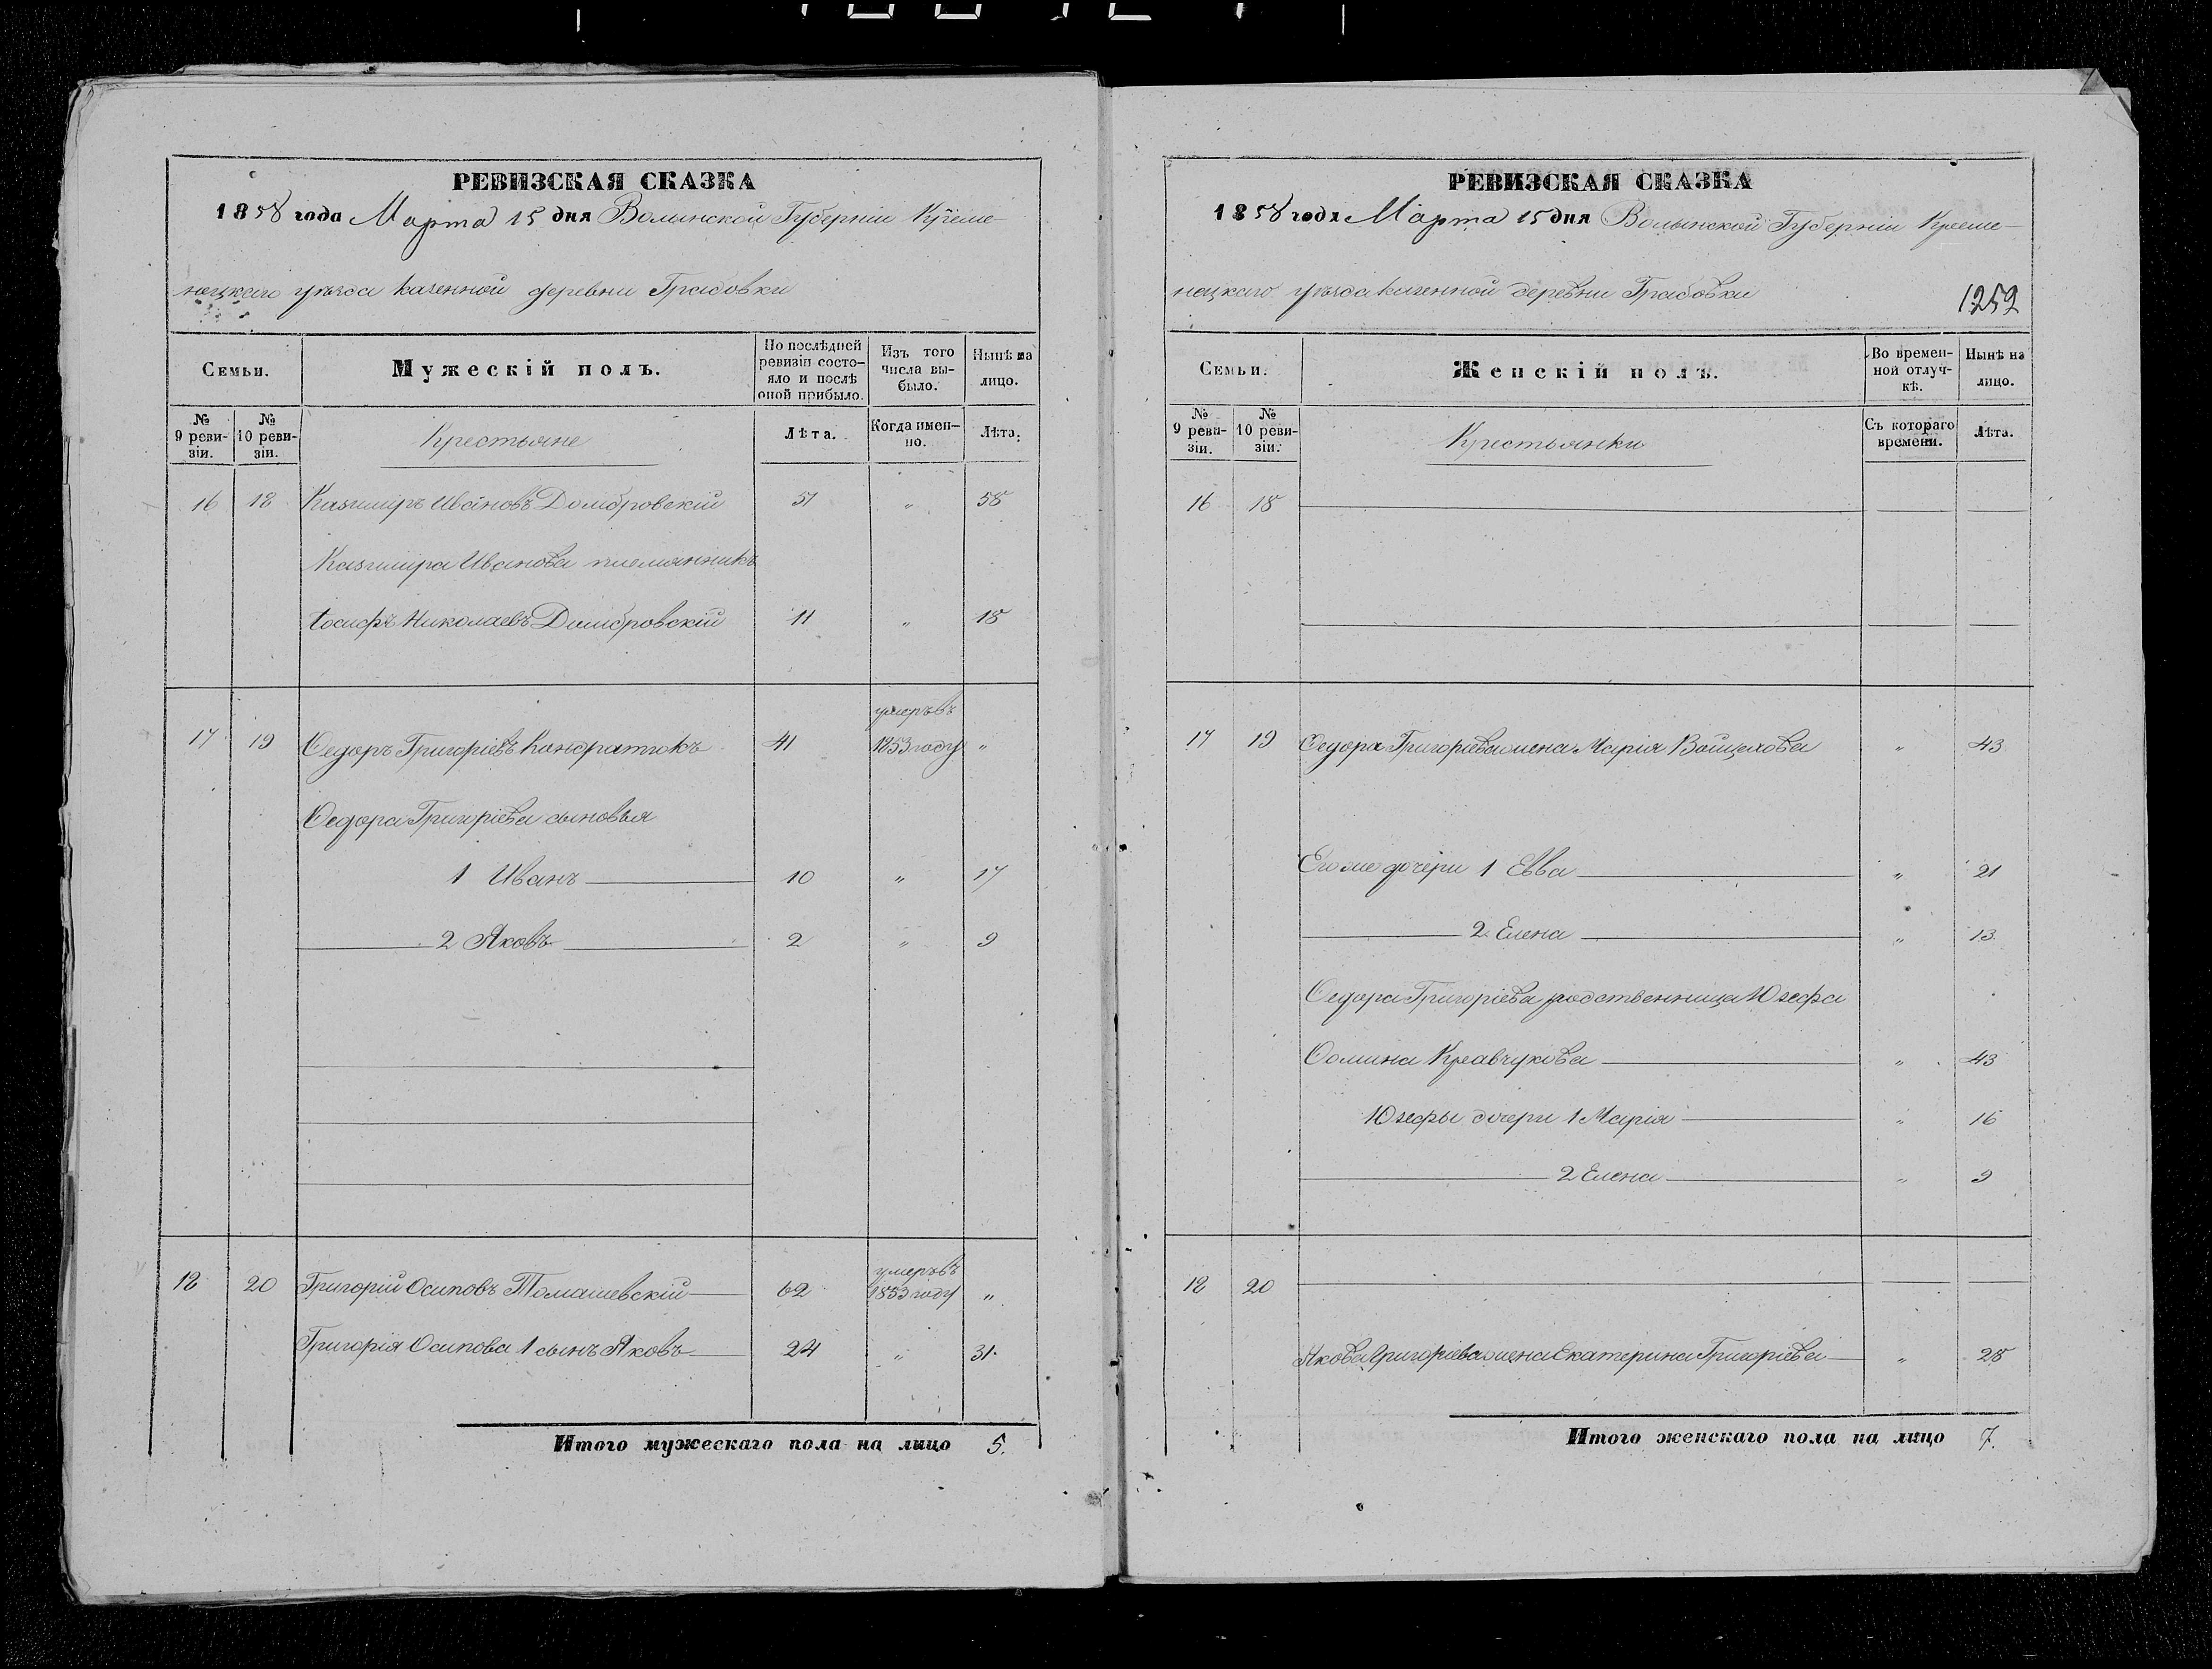 РЕВИЗСКАЯ СКАЗКА
1858 года Марта 15 дня Волынской Губерніи Креме-
нецкаго уѣзда казенной деревни Грабовки
Семьи.
Мужескій полъ.
По послѣдней ревизіи состо-яло и послѣ оной прибыло.
Изъ того числа вы-было.
Нынѣ на лицо.
№ 9 реви-зіи.
№ 10 реви-зіи.
Крестьяне
Лѣта.
Когда имен-но.
Лѣта.
16 18 Казимиръ Ивановъ Домбровскій 51 „ 58
Казимира Иванова племянникъ
Іосифъ Николаевъ Домбровскій 11 „ 18
умеръ въ
17 19 Ѳедоръ Григоріевъ Кондратюкъ 41 1853 году „
Ѳедора Григоріева сыновья
1 Иванъ 10 „ 17
2 Яковъ 2 „ 9
умеръ въ
18 20 Григорій Осиповъ Томашевскій 62 1853 году „
Григорія Осипова 1 сынъ Яковъ 24 „ 31.
Итого мужескаго пола на лицо 5.
РЕВИЗСКАЯ СКАЗКА
1858 года Марта 15 дня Волынской Губерніи Креме-
нецкаго уѣзда казенной деревни Грабовки
1252
Семьи.
Женскій полъ.
Во времен-ной отлуч-кѣ.
Нынѣ на лицо.
№ 9 реви-зіи.
№ 10 реви-зіи.
Крестьянки
Съ котораго времени.
Лѣта.
16 18
17 19 Ѳедора Григоріева жена Марія Войцехова „ 43
Его же дочери 1 Евва „ 21
2 Елена „ 13
Ѳедора Григоріева родственница Юзефа
Ѳомина Кравчукова „ 43
Юзефы дочери 1 Марія „ 16
2 Елена „ 9
18 20
Якова Григоріева жена Екатерина Григоріева „ 28
Итого женскаго пола на лицо 7.